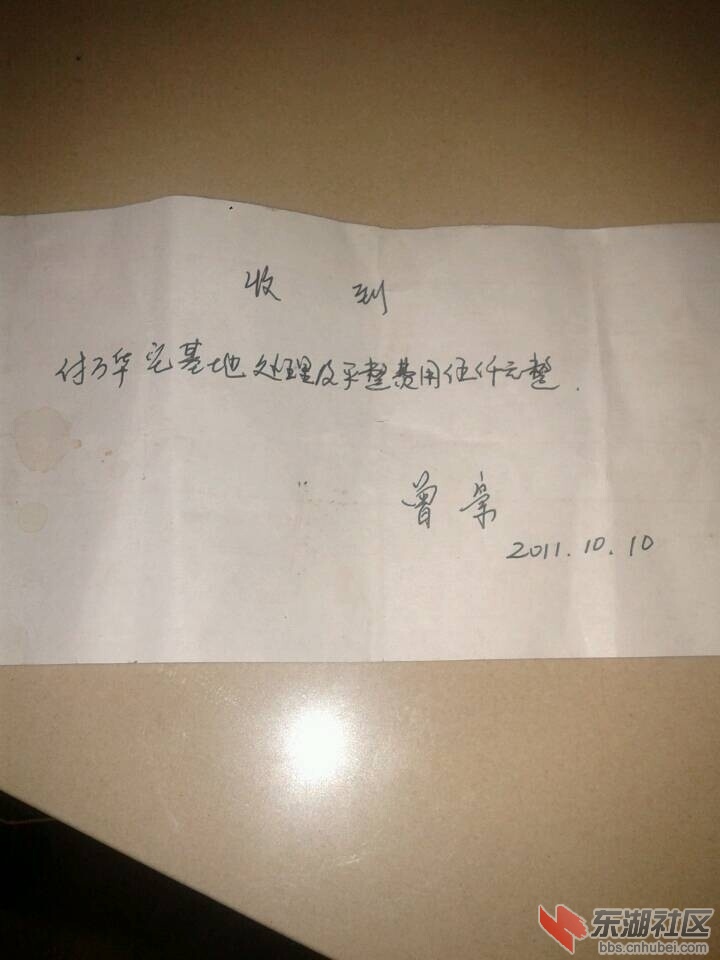 收到
付万华宅基地处理及平整费用伍仟元整.
曾
2011.10.10
东湖社区
bbs.cnhubei.com